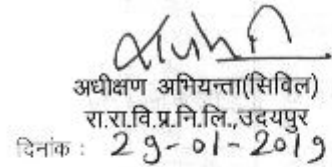 अधीक्षण अभियन्ता(सिविल)
रा.रा.वि.प्र.नि.लि.,उदयपुर
दिनांक : 29-01-2019